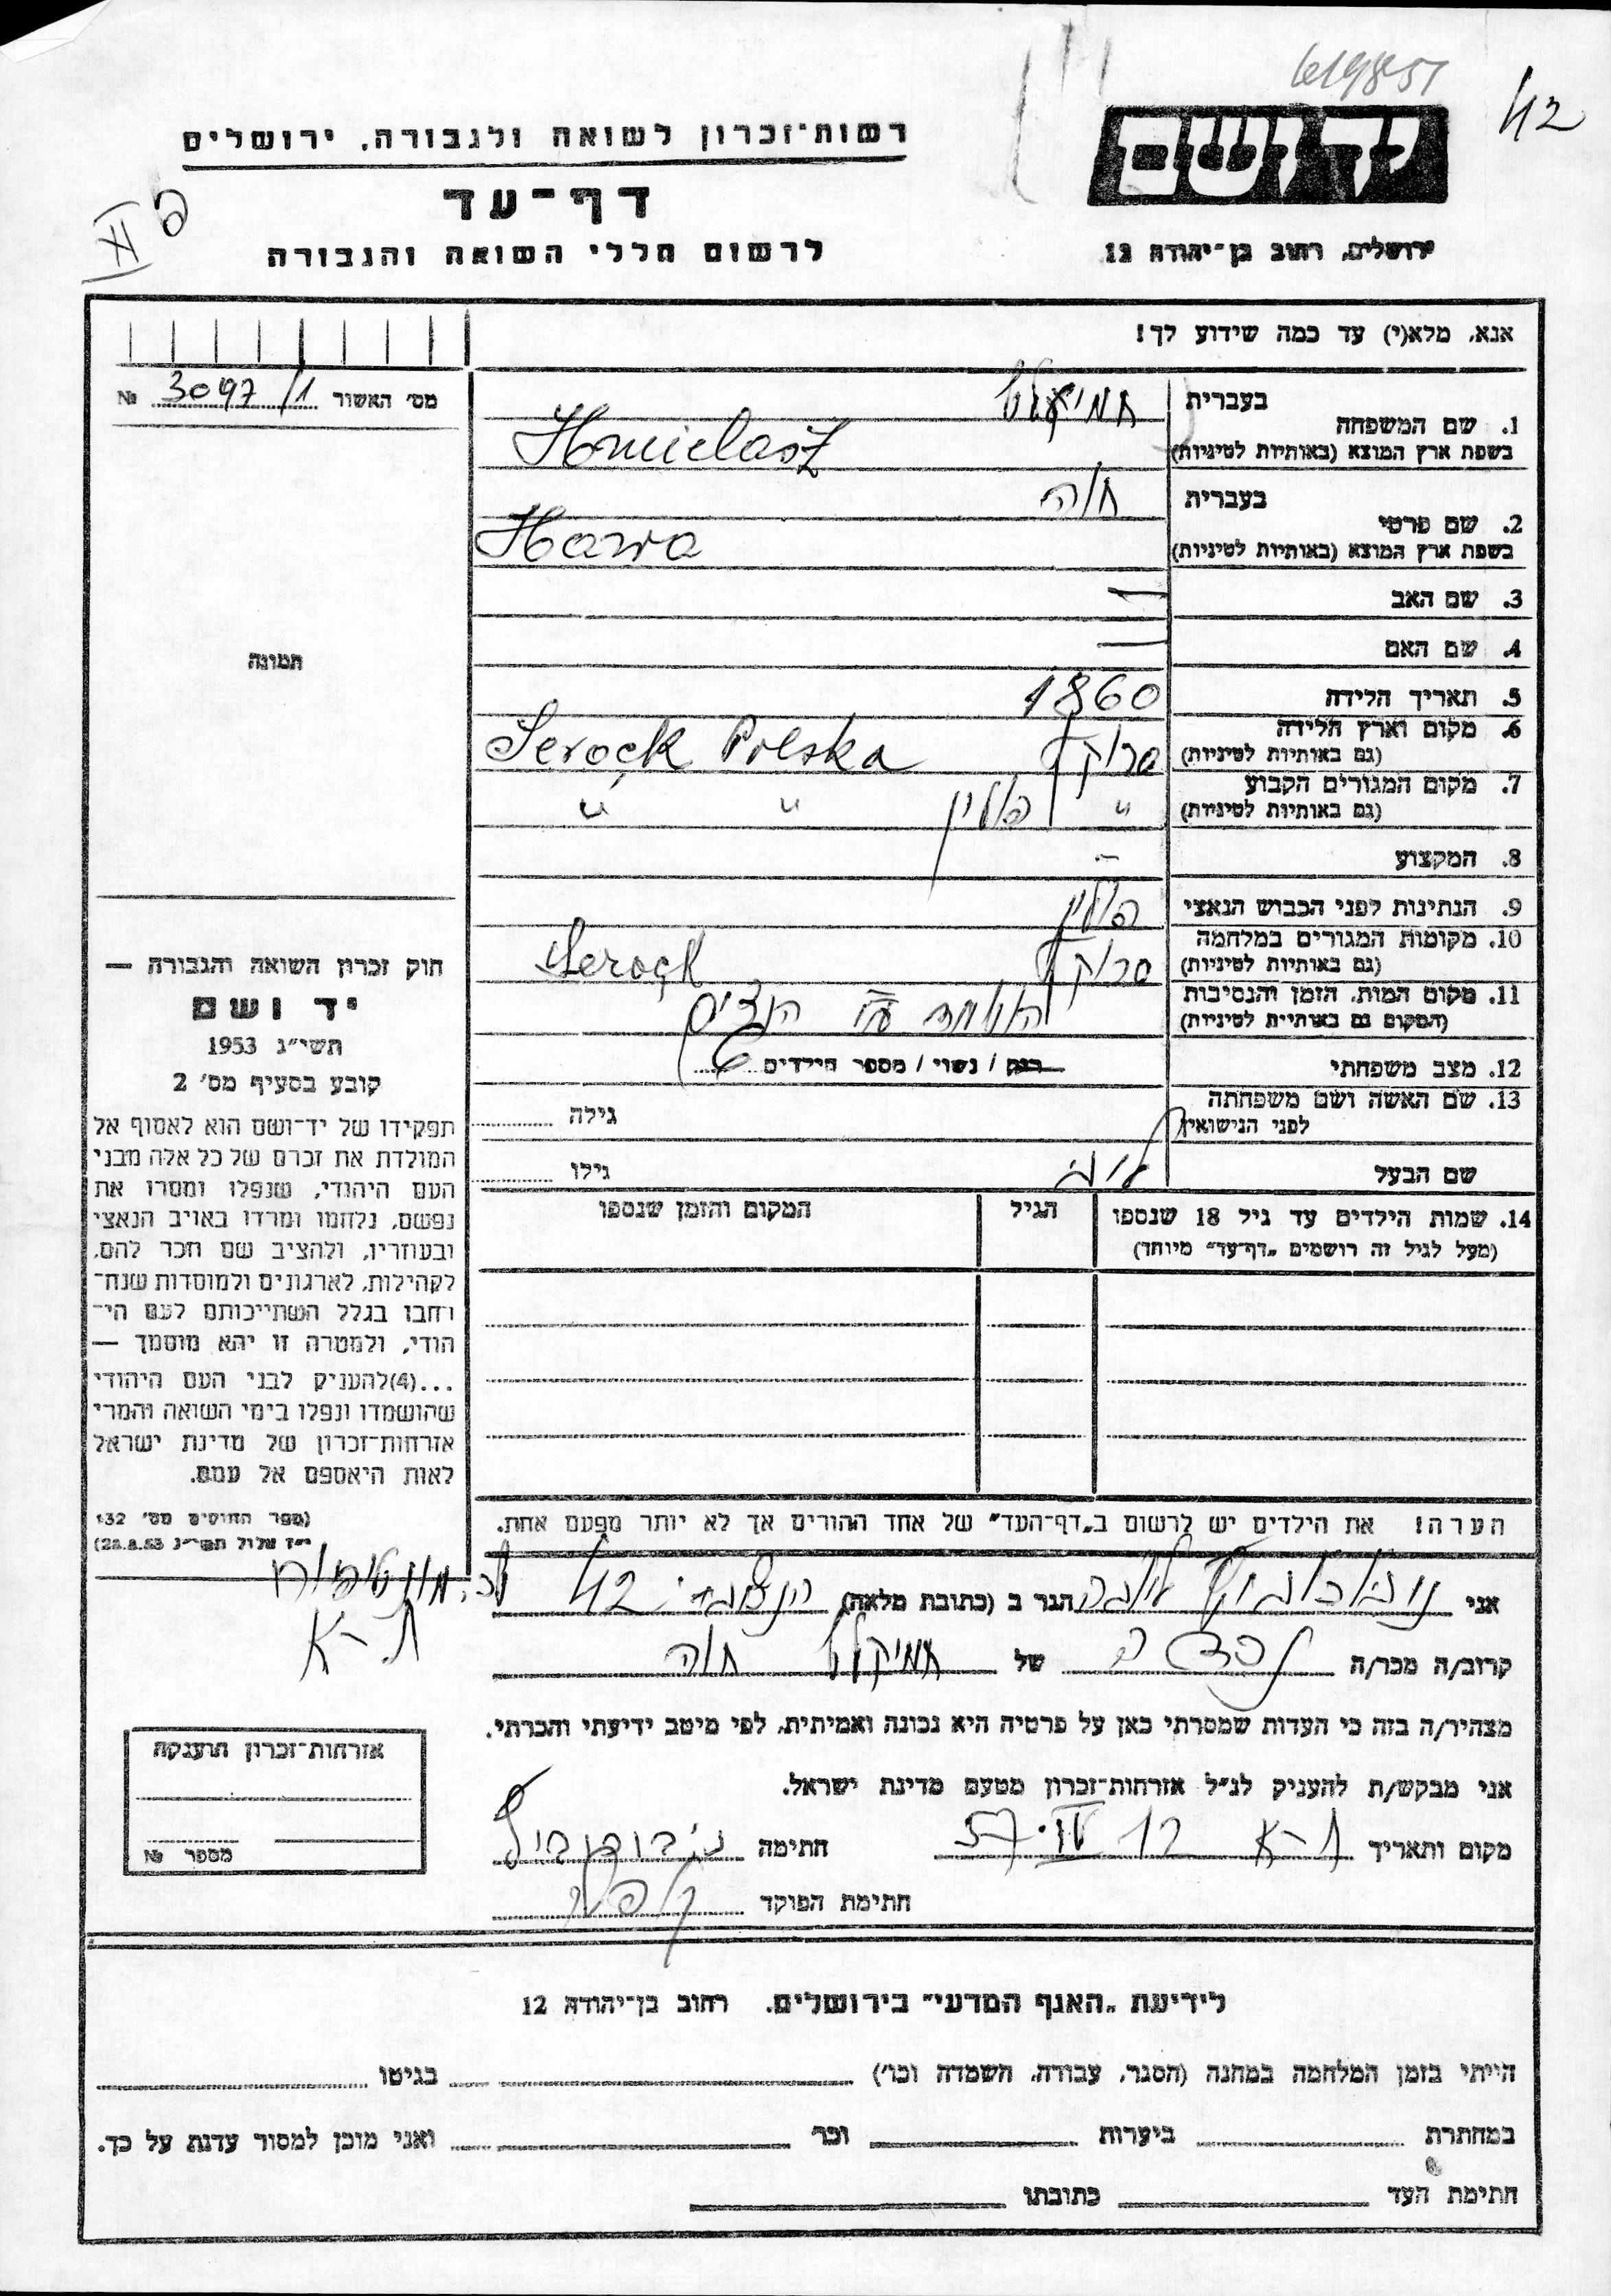 619851
42
רשות־זכרון לשואה ולגבורה, ירושלים
יד ושם
דף־עד
II
לרשום חללי השואה והגבורה
ירושלים, רחוב בן־יהודה 12
אנא, מלא(י) עד כמה שידוע לך!
מס׳ האשור 3097/1 №
בעברית
1. שם המשפחה
בשפת ארץ המוצא (באותיות לטיניות) Hmielasz
בעברית חוה
2. שם פרטי
בשפת ארץ המוצא (באותיות לטיניות) Hawa
3. שם האב —
4. שם האם —
תמונה
5. תאריך הלידה 1860
6. מקום וארץ הלידה
(גם באותיות לטיניות) סרוצק Serock Polska
7. מקום המגורים הקבוע
(גם באותיות לטיניות) " פולין " "
8. המקצוע -
9. הנתינות לפני הכבוש הנאצי פולין
10. מקומות המגורים במלחמה
(גם באותיות לטיניות) סרוצק Serock
11. מקום המות, הזמן והנסיבות
(המקום גם באותיות לטיניות) הושמדה ע״י הנאצים
12. מצב משפחתי רווק / נשוי / מספר הילדים
13. שם האשה ושם משפחתה
לפני הנישואין גילה
שם הבעל גילו
14. שמות הילדים עד גיל 18 שנספו הגיל המקום והזמן שנספו
(מעל לגיל זה רושמים „דף־עד״ מיוחד)
חוק זכרון השואה והגבורה —
יד ושם
תשי״ג 1953
קובע בסעיף מס׳ 2
תפקידו של יד־ושם הוא לאסוף אל
המולדת את זכרם של כל אלה מבני
העם היהודי, שנפלו ומסרו את
נפשם, נלחמו ומרדו באויב הנאצי
ובעוזריו, ולהציב שם וזכר להם,
לקהילות, לארגונים ולמוסדות שנח־
רחבו בגלל השתייכותם לעם הי־
הודי, ולמטרה זו יהא מוסמך —
...(4)להעניק לבני העם היהודי
שהושמדו ונפלו בימי השואה והמרי
אזרחות־זכרון של מדינת ישראל
לאות היאספם אל עמם.
(ספר החוקים מס׳ 132
י״ז אלול תשי״ג 28.8.53)
הערה! את הילדים יש לרשום ב„דף־העד״ של אחד ההורים אך לא יותר מפעם אחת.
אני הגר ב (כתובת מלאה) 42
ת־א
קרוב/ה מכר/ה נכדה של חוה
מצהיר/ה בזה כי העדות שמסרתי כאן על פרטיה היא נכונה ואמיתית, לפי מיטב ידיעתי והכרתי.
אני מבקש/ת להעניק לנ״ל אזרחות־זכרון מטעם מדינת ישראל.
מקום ותאריך ת־א 12 IV.57 חתימה
חתימת הפוקד
אזרחות־זכרון הוענקה
מספר №
לידיעת „האגף המדעי״ בירושלים. רחוב בן־יהודה 12
הייתי בזמן המלחמה במחנה (הסגר, עבודה, השמדה וכו׳) בגיטו
במחתרת ביערות וכו׳ ואני מוכן למסור עדות על כך.
חתימת העד כתובתו